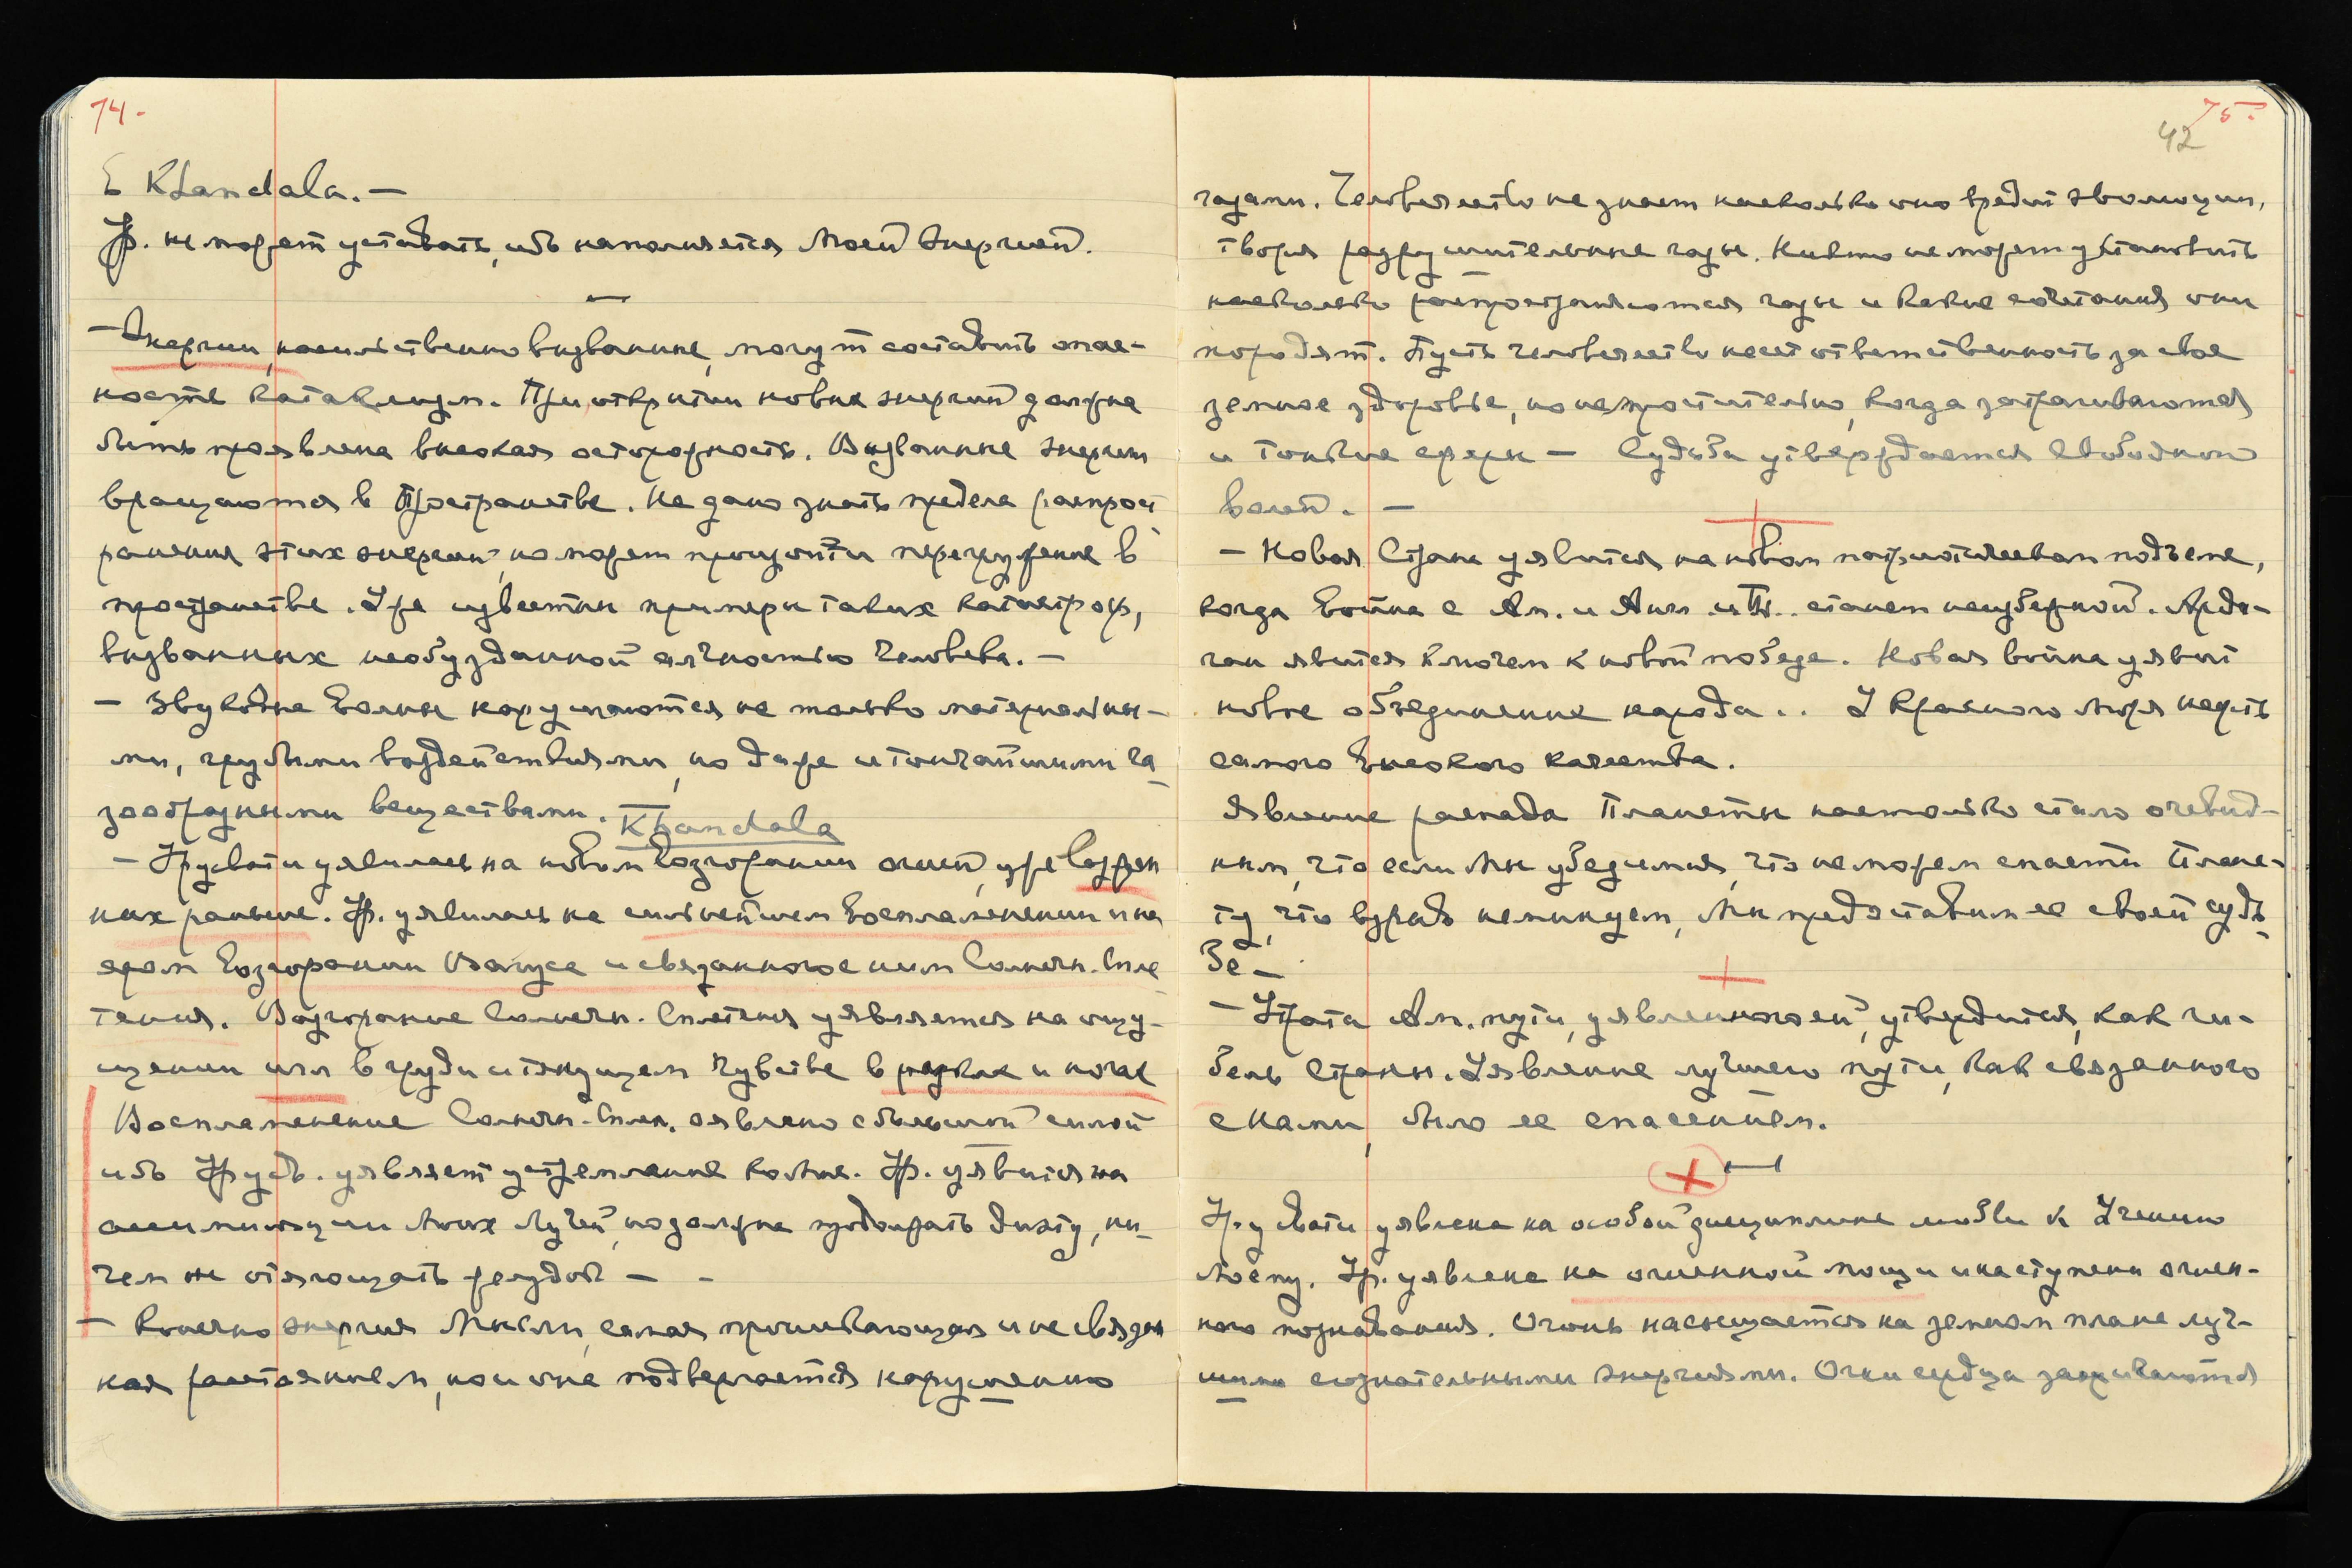 74.
Khandala. —
Ур. не может уставать, ибо наполняется Моей Энергией.
— Энергии, насильственно вызванные, могут составить опас-
ность катаклизм. При открытии новых энергий должна
быть проявлена высокая осторожность. Вызванные энергии
вращаются в Пространстве. Не дано знать предела распрост
ранения этих энергий, но может произойти перегружение в
пространстве. Уже известны примеры таких катастроф,
вызванных необузданной алчностью человека. —
— Звуковые волны нарушаются не только материальны-
ми, грубыми воздействиями, но даже и тончайшими га-
зообразными веществами. Khandala
— Урусвати уявилась на новом возгорании огней, уже возжен
ных раньше. Ур. уявилась на сильнейшем воспламенении и на
яром возгорании Вагуса и связанного с ним Солнечн. Спле-
тения. Возгорание Солнечн. Сплетения уявляется на ощу-
щении или в груди и тянущем чувстве в руках и ногах
Воспламенение Солнечн. Спл. оявлено с большой силой
ибо Урусв. уявляет устремление ко Мне. Ур. уявится на
ассимиляции Моих Лучей, но должна продолжать диэту, ни-
чем не отягощать желудок — -
— Конечно энергия Мысли, самая проникающая и не связан
ная расстоянием, но и она подвергается нарушению
75.
42
газами. Человечество не знает насколько оно вредит эволюции,
творя разрушительные газы. Никто не может установить
насколько распространяются газы и какие сочетания они
породят. Пусть человечество несет ответственность за свое
земное здоровье, но непростительно, когда затрагиваются
и тонкие сферы — Судьба утверждается свободной
волей. —
— Новая Страна уявится на новом патриотическом подъеме,
когда война с Ам. и Англ. и Т. станет неизбежной. Арда-
ган явится ключем к новой победе. Новая война уявит
новое объединение народа.. У Красного Моря нефть
самого высокого качества.
Явление распада Планеты настолько стало очевид-
ным, что если Мы убедимся, что не можем спасти Плане-
ту, что взрыв неминуем, Мы предоставим ее своей судь-
бе —
— Утрата Ам. пути, уявленного ей, утвердится, как ги-
бель страны. Уявление лучшего пути, как связанного
с Нами, было ее спасением.
Урусвати уявлена на особой дисциплине любви к Учению
Моему. Ур. уявлена на огненной мощи и на ступени огнен-
ного познавания. Огонь насыщается на земном плане луч-
шими сознательными энергиями. Огни сердца закрываются